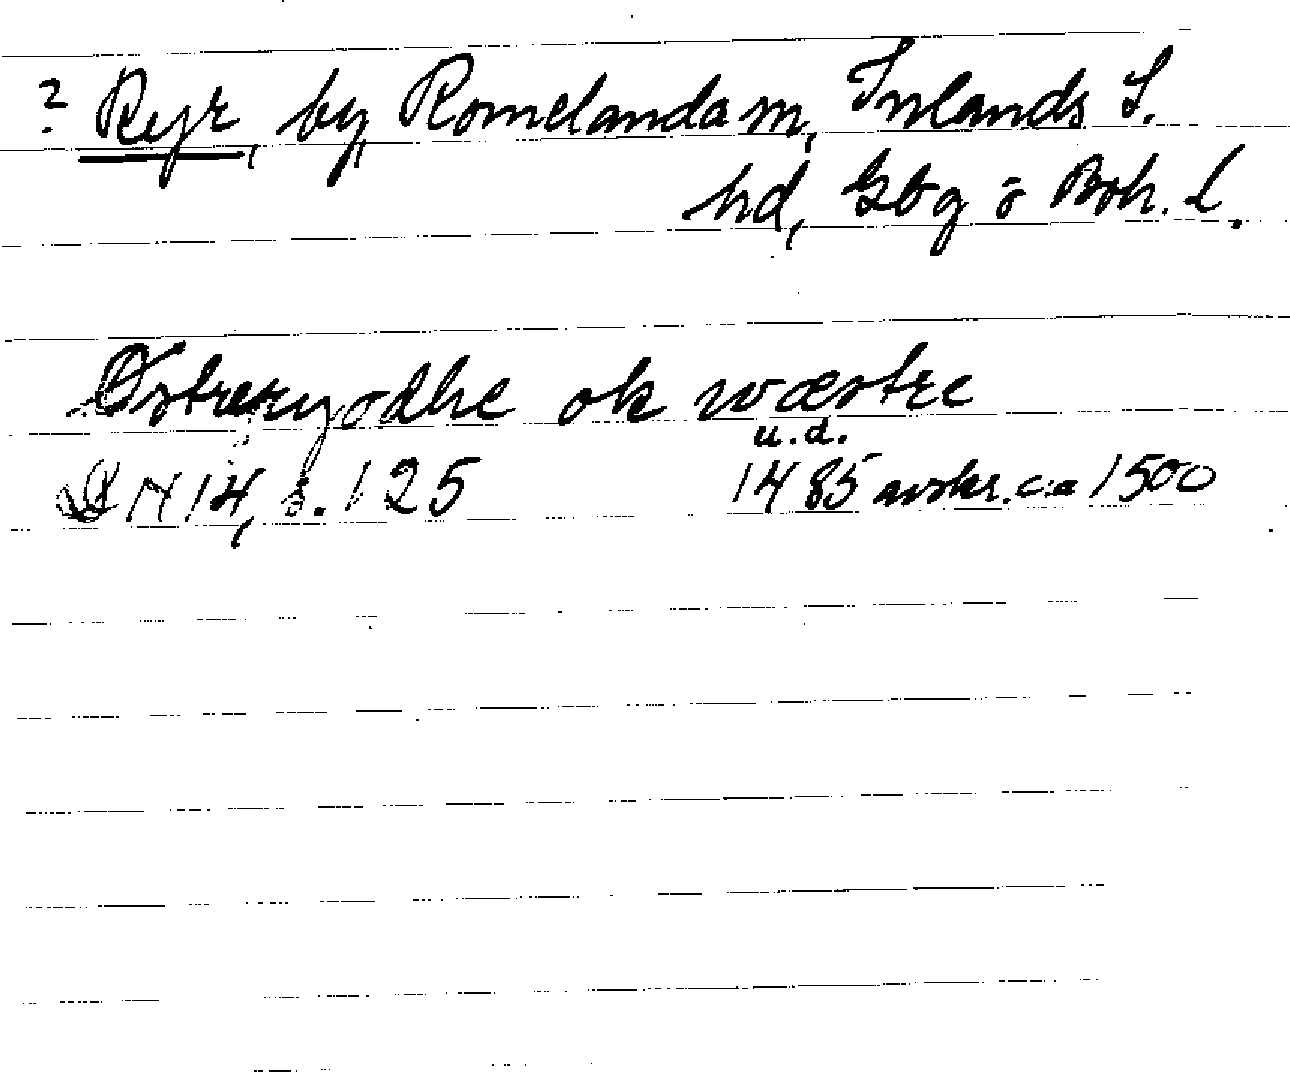 ? Ryr, by, Romelanda sn, Inlands S.
hd, Gbg o Boh. l.
Østreryodhe ok wæstre
u.d.
DN 14, s. 125 1485 avskr. ca 1500